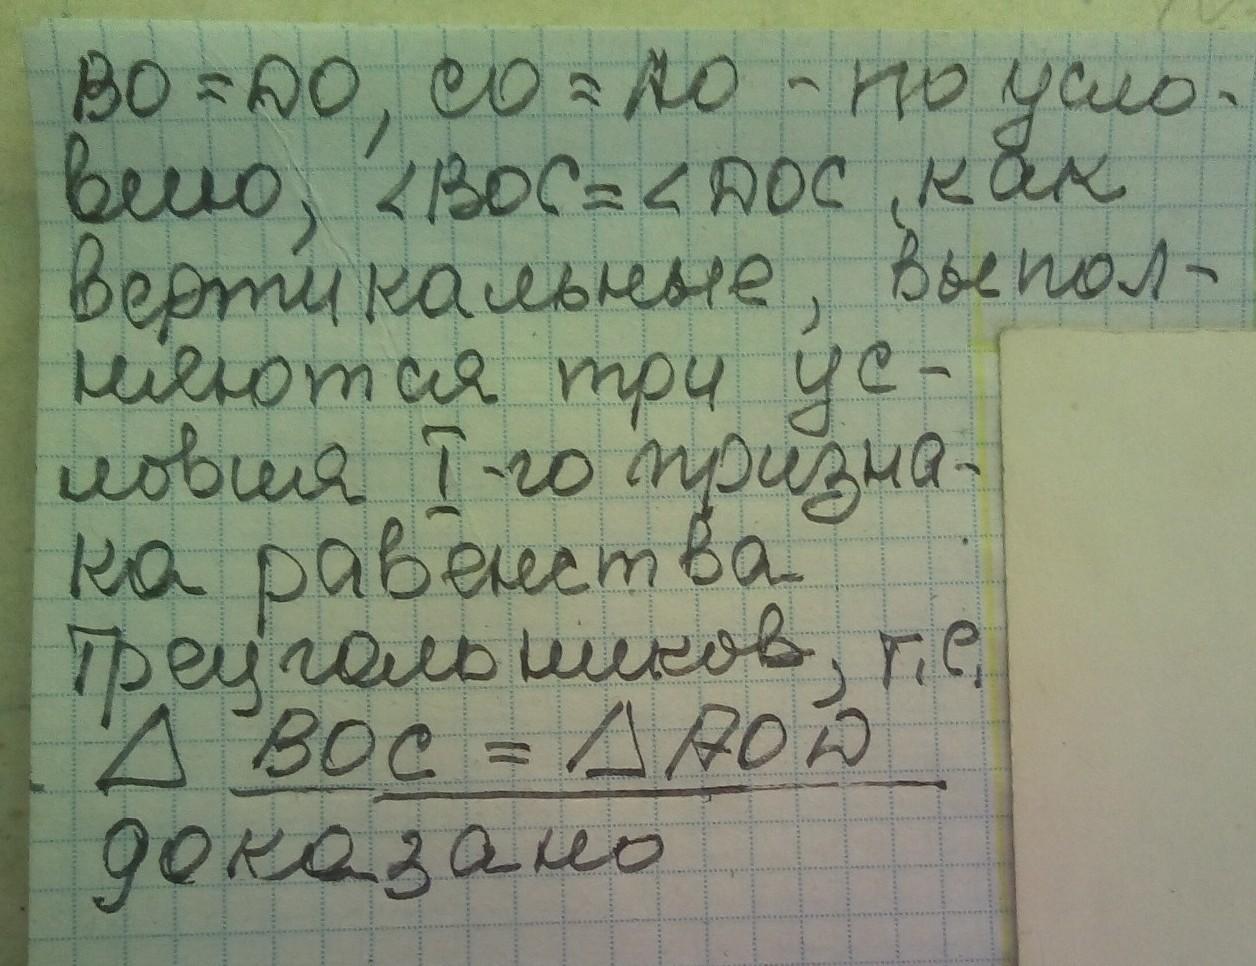 BO = DO, CO = AO - по усло-
вию, <BOC = <DOC, как
вертикальные, выпол-
няются три ус-
ловия I-го призна-
ка равенства
Треугольников, т.е.
△ BOC = △ AOD
доказано